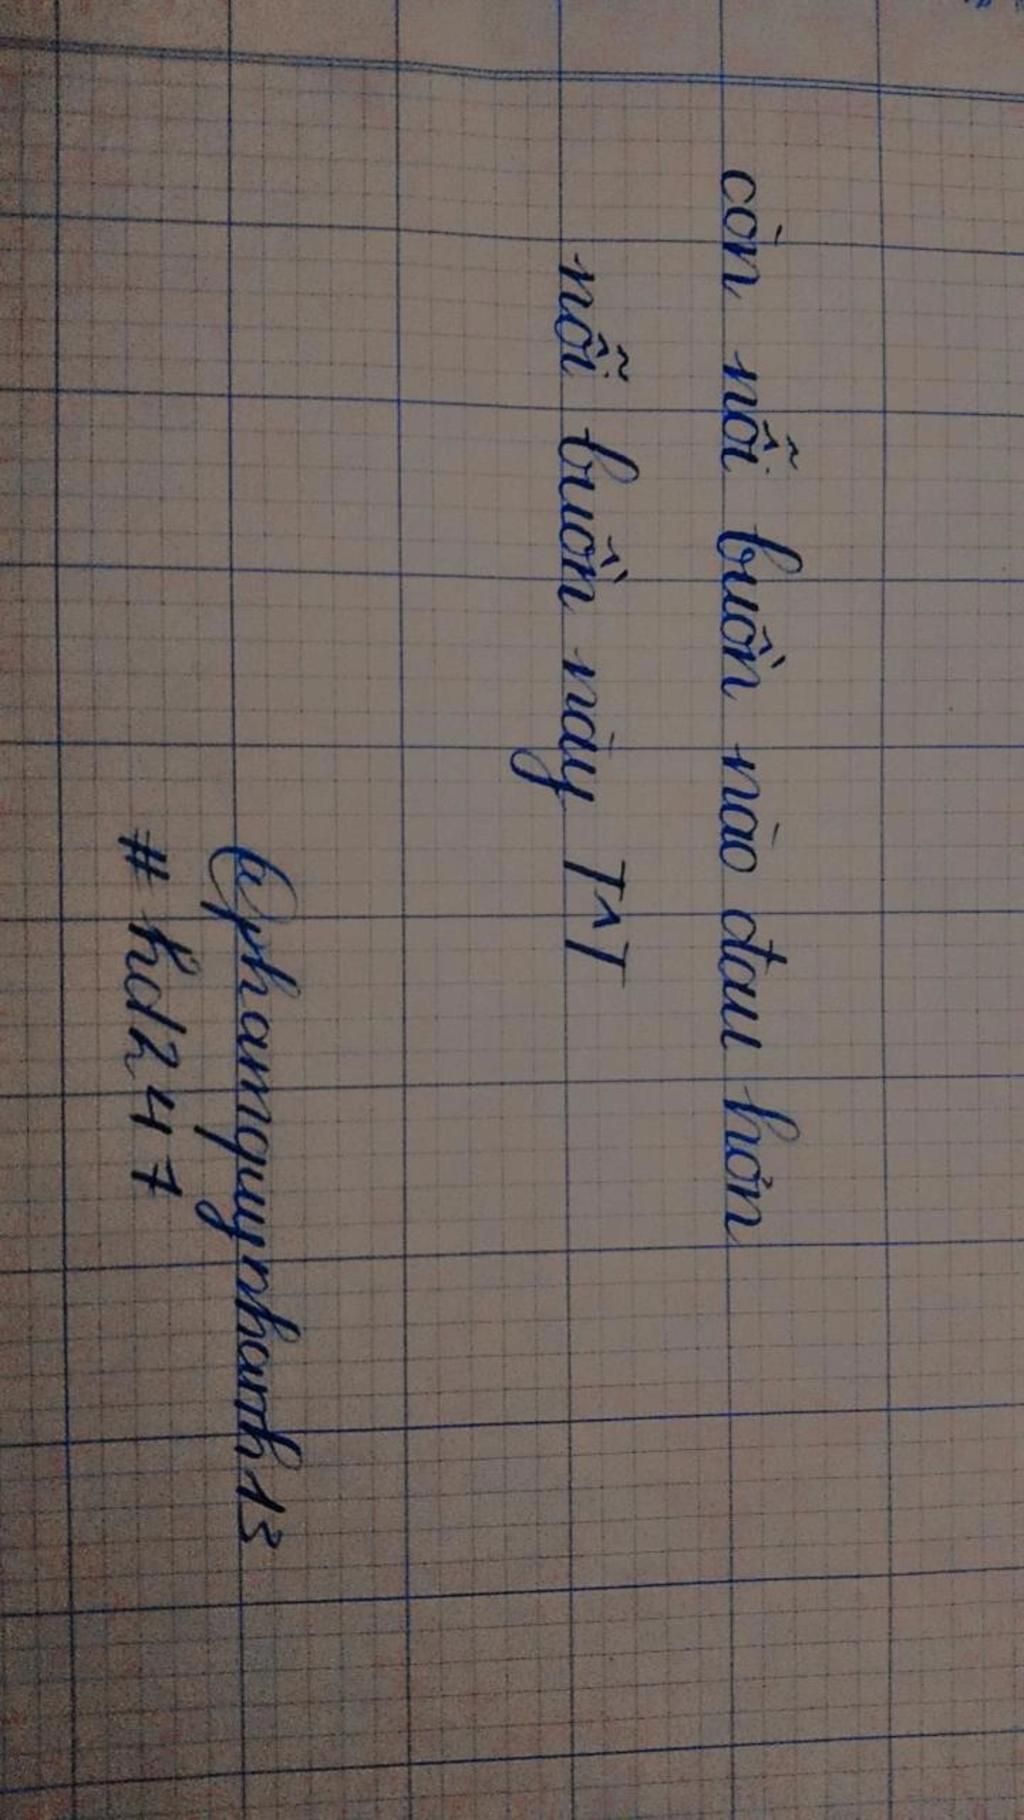 còn nỗi buồn nào đau hơn
nỗi buồn này T^T
@phamquyphamh13
#hd247